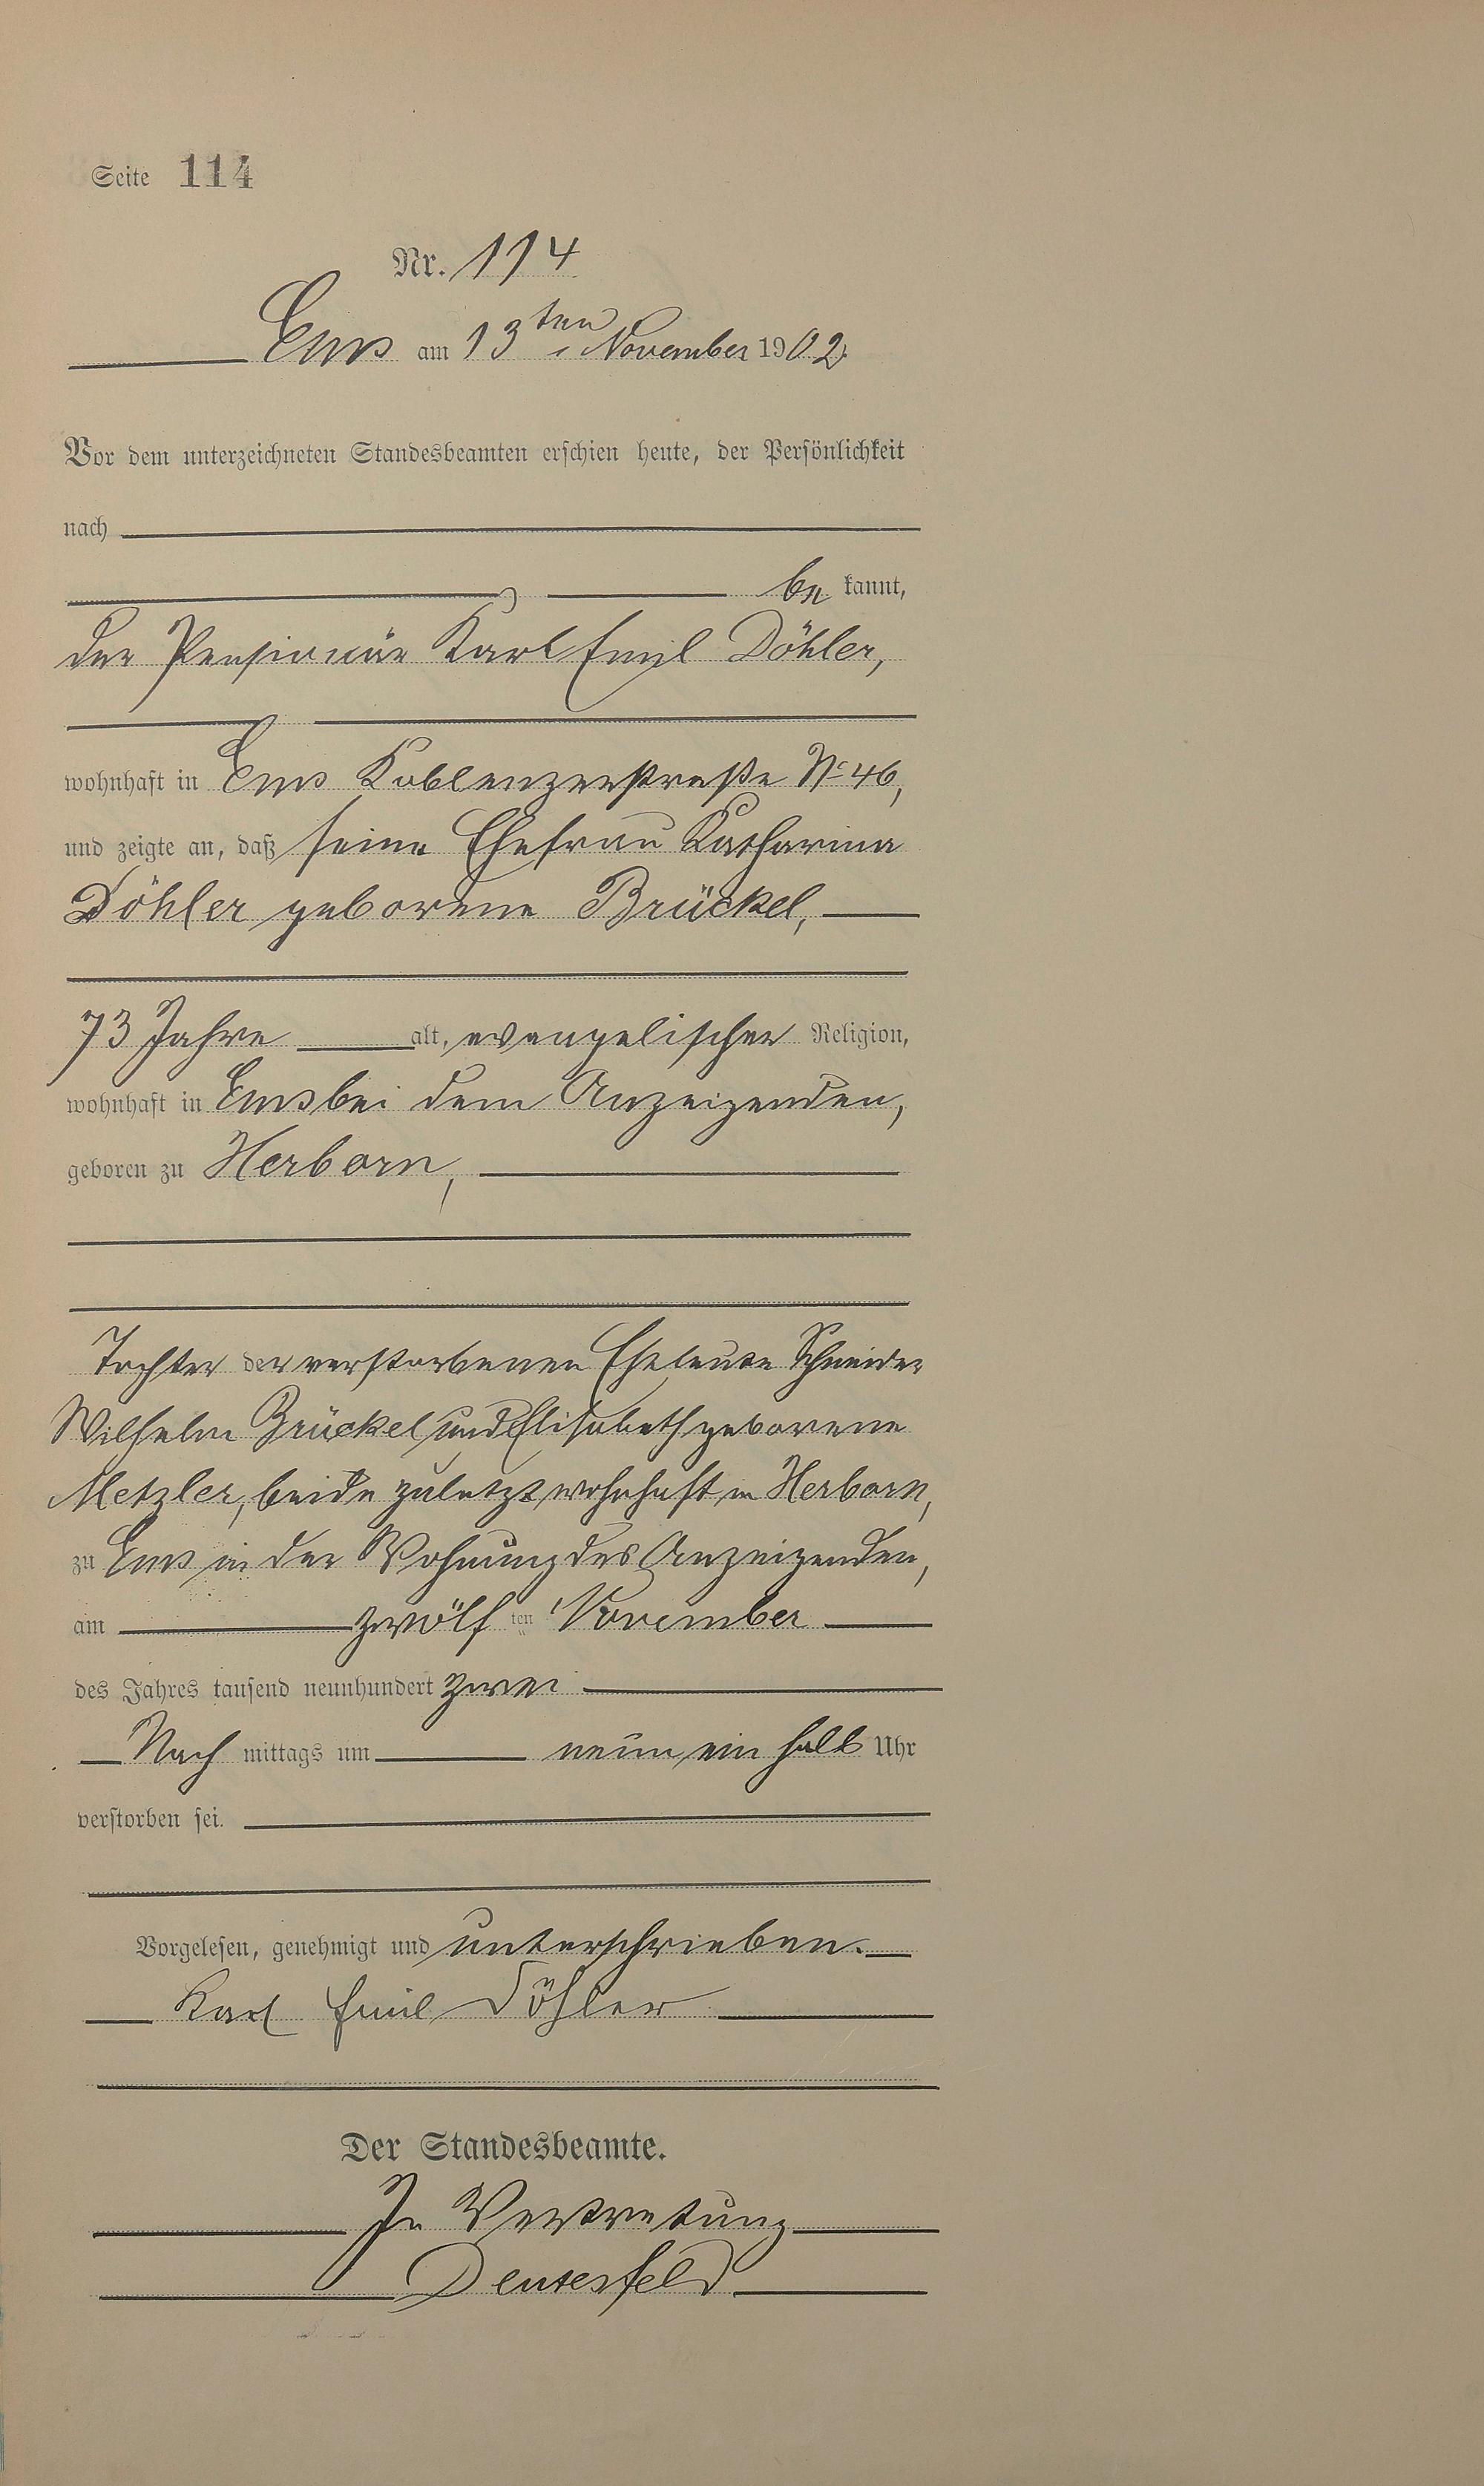 Seite 114
Nr. 114
Ems am 13ten November 1902
Vor dem unterzeichneten Standesbeamten erschien heute, der Persönlichkeit
nach
be kannt,
der Pensionär Karl Emil Döhler,
wohnhaft in Ems Koblenzerstraße No 46,
und zeigte an, daß seine Ehefrau Katharina
Döhler geborene Brückel,
73 Jahre alt, evangelischer Religion,
wohnhaft in Ems bei dem Anzeigenden,
geboren zu Herborn,
Tochter der verstorbenen Eheleute Schneider
Wilhelm Brückel und Elisabeth geborene
Metzler, beide zuletzt wohnhaft in Herborn,
zu Ems in der Wohnung des Anzeigenden,
am zwölf ten November
des Jahres tausend neunhundert zwei
Nach mittags um neun ein halb Uhr
verstorben sei.
Vorgelesen, genehmigt und unterschrieben.
Karl Emil Döhler
Der Standesbeamte.
In Vertretung
Deutesfeld